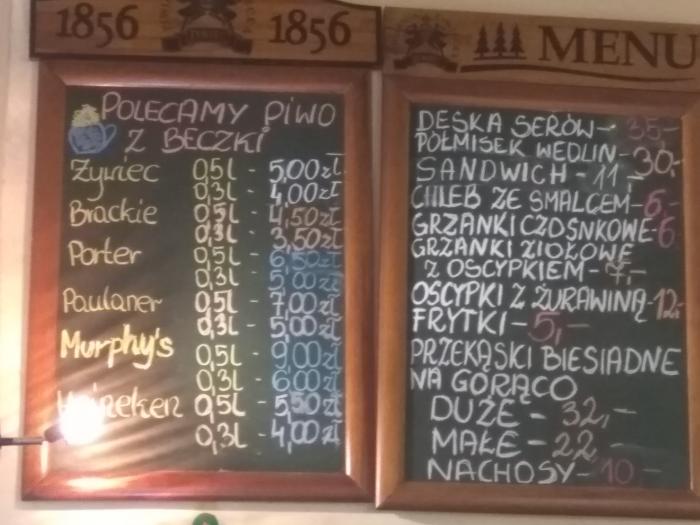 1856 1856
POLECAMY PIWO
Z BECZKI
Żywiec 0,5l - 5,00zł
0,3l - 4,00zł
Brackie 0,5l - 4,50zł
0,3l - 3,50zł
Porter 0,5l - 6,50zł
0,3l - 5,00zł
Paulaner 0,5l - 7,00zł
0,3l - 5,00zł
Murphy's 0,5l - 9,00zł
0,3l - 6,00zł
Heineken 0,5l - 5,50zł
0,3l - 4,00zł
MENU
DESKA SERÓW - 35,-
PÓŁMISEK WĘDLIN - 30,-
SANDWICH - 11,-
CHLEB ZE SMALCEM - 6,-
GRZANKI CZOSNKOWE - 6
GRZANKI ZIOŁOWE
Z OSCYPKIEM - 7,-
OSCYPKI Z ŻURAWINĄ - 12,-
FRYTKI - 5,-
PRZEKĄSKI BIESIADNE
NA GORĄCO
DUŻE - 32,-
MAŁE - 22,-
NACHOSY - 10,-